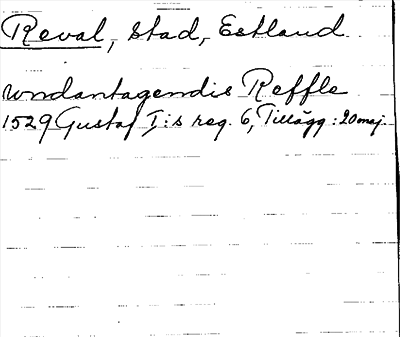 Reval, stad, Estland
undantagendis Reffle
1529 Gustaf I:s reg. 6, Tillägg: 20 maj.